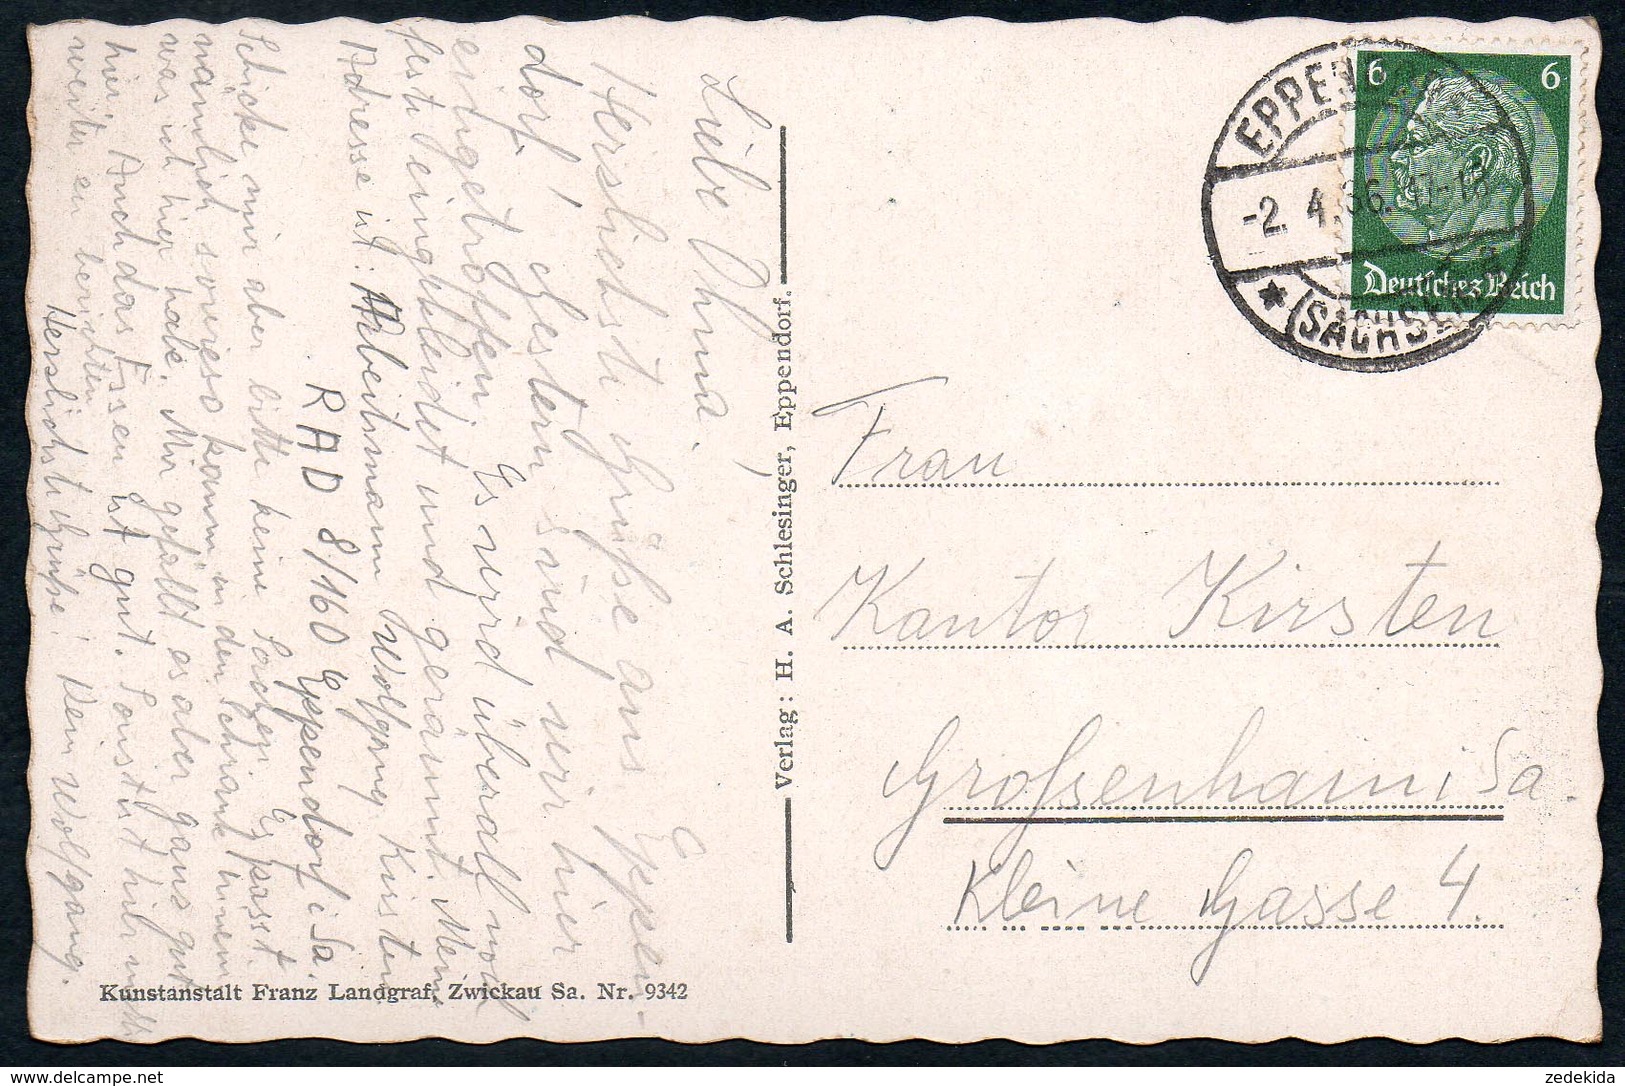 Liebe Ohma!
Herzlichste Grüße aus Eppen-
dorf! Gestern sind wir hier
eingetroffen. Es wird überall noch
fest eingekleidet und geräumt. Meine
Adresse ist: Arbeitsmann Wolfgang Kirsten
RAD 8/160 Eppendorf i Sa.
Schicke mir aber bitte keine Sachen. Es passt
nämlich sowieso kaum in den Schrank hinein
was ich hier habe. Mir gefällt es aber ganz gut
hier. Auch das Essen ist gut. Sonst ist hier nicht
weiter zu berichten.
Herzlichste Grüße! Dein Wolfgang.
Kunstanstalt Franz Landgraf, Zwickau Sa. Nr. 9342
Verlag: H. A. Schlesinger, Eppendorf.
6 6
Deutsches Reich
EPPENDORF
-2. 4.36. 17-18
★ (SACHSEN)
Frau
Kantor Kirsten
Großenhain i Sa.
Kleine Gasse 4.
zedekida
delcampe.net